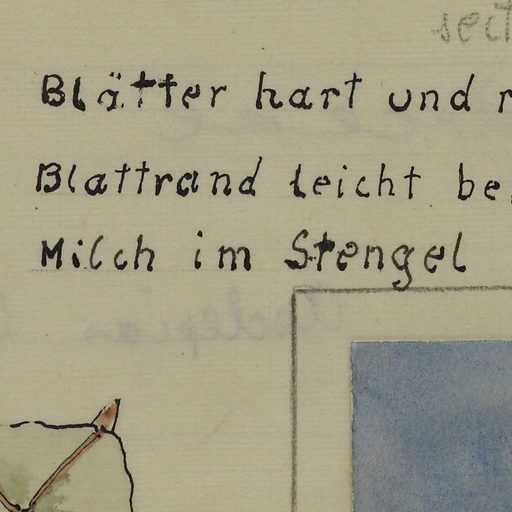 seit
Blätter hart und
Blattrand leicht
Milch im Stengel